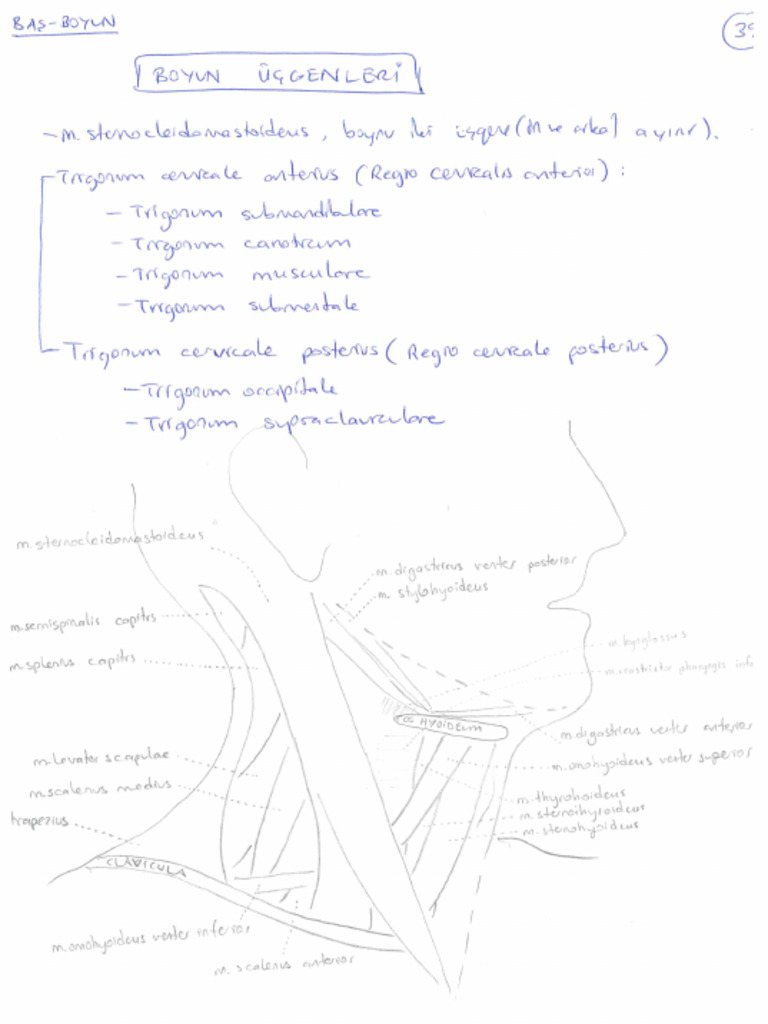 BAŞ-BOYUN
BOYUN ÜÇGENLERİ
- m. sternocleidomastoideus, boynu iki üçgene (ön ve arka) ayırır).
- Trigonum cervicale anterius (Regio cervicalis anterior) :
- Trigonum submandibulare
- Trigonum caroticum
- Trigonum musculare
- Trigonum submentale
- Trigonum cervicale posterius (Regio cervicale posterius)
- Trigonum occipitale
- Trigonum supraclaviculare
m. sternocleidomastoideus
m. digastricus venter posterior
m. stylohyoideus
m. semispinalis capitis
m. hyoglossus
m. splenius capitis
m. constrictor pharyngis infe
OS HYOIDEUM
m. digastricus venter anterior
m. levator scapulae
m. omohyoideus venter superior
m. scalenus medius
m. thyrohoideus
m. sternothyroideus
trapezius
m. sternohyoideus
CLAVICULA
m. omohyoideus venter inferior
m. scalenus anterior